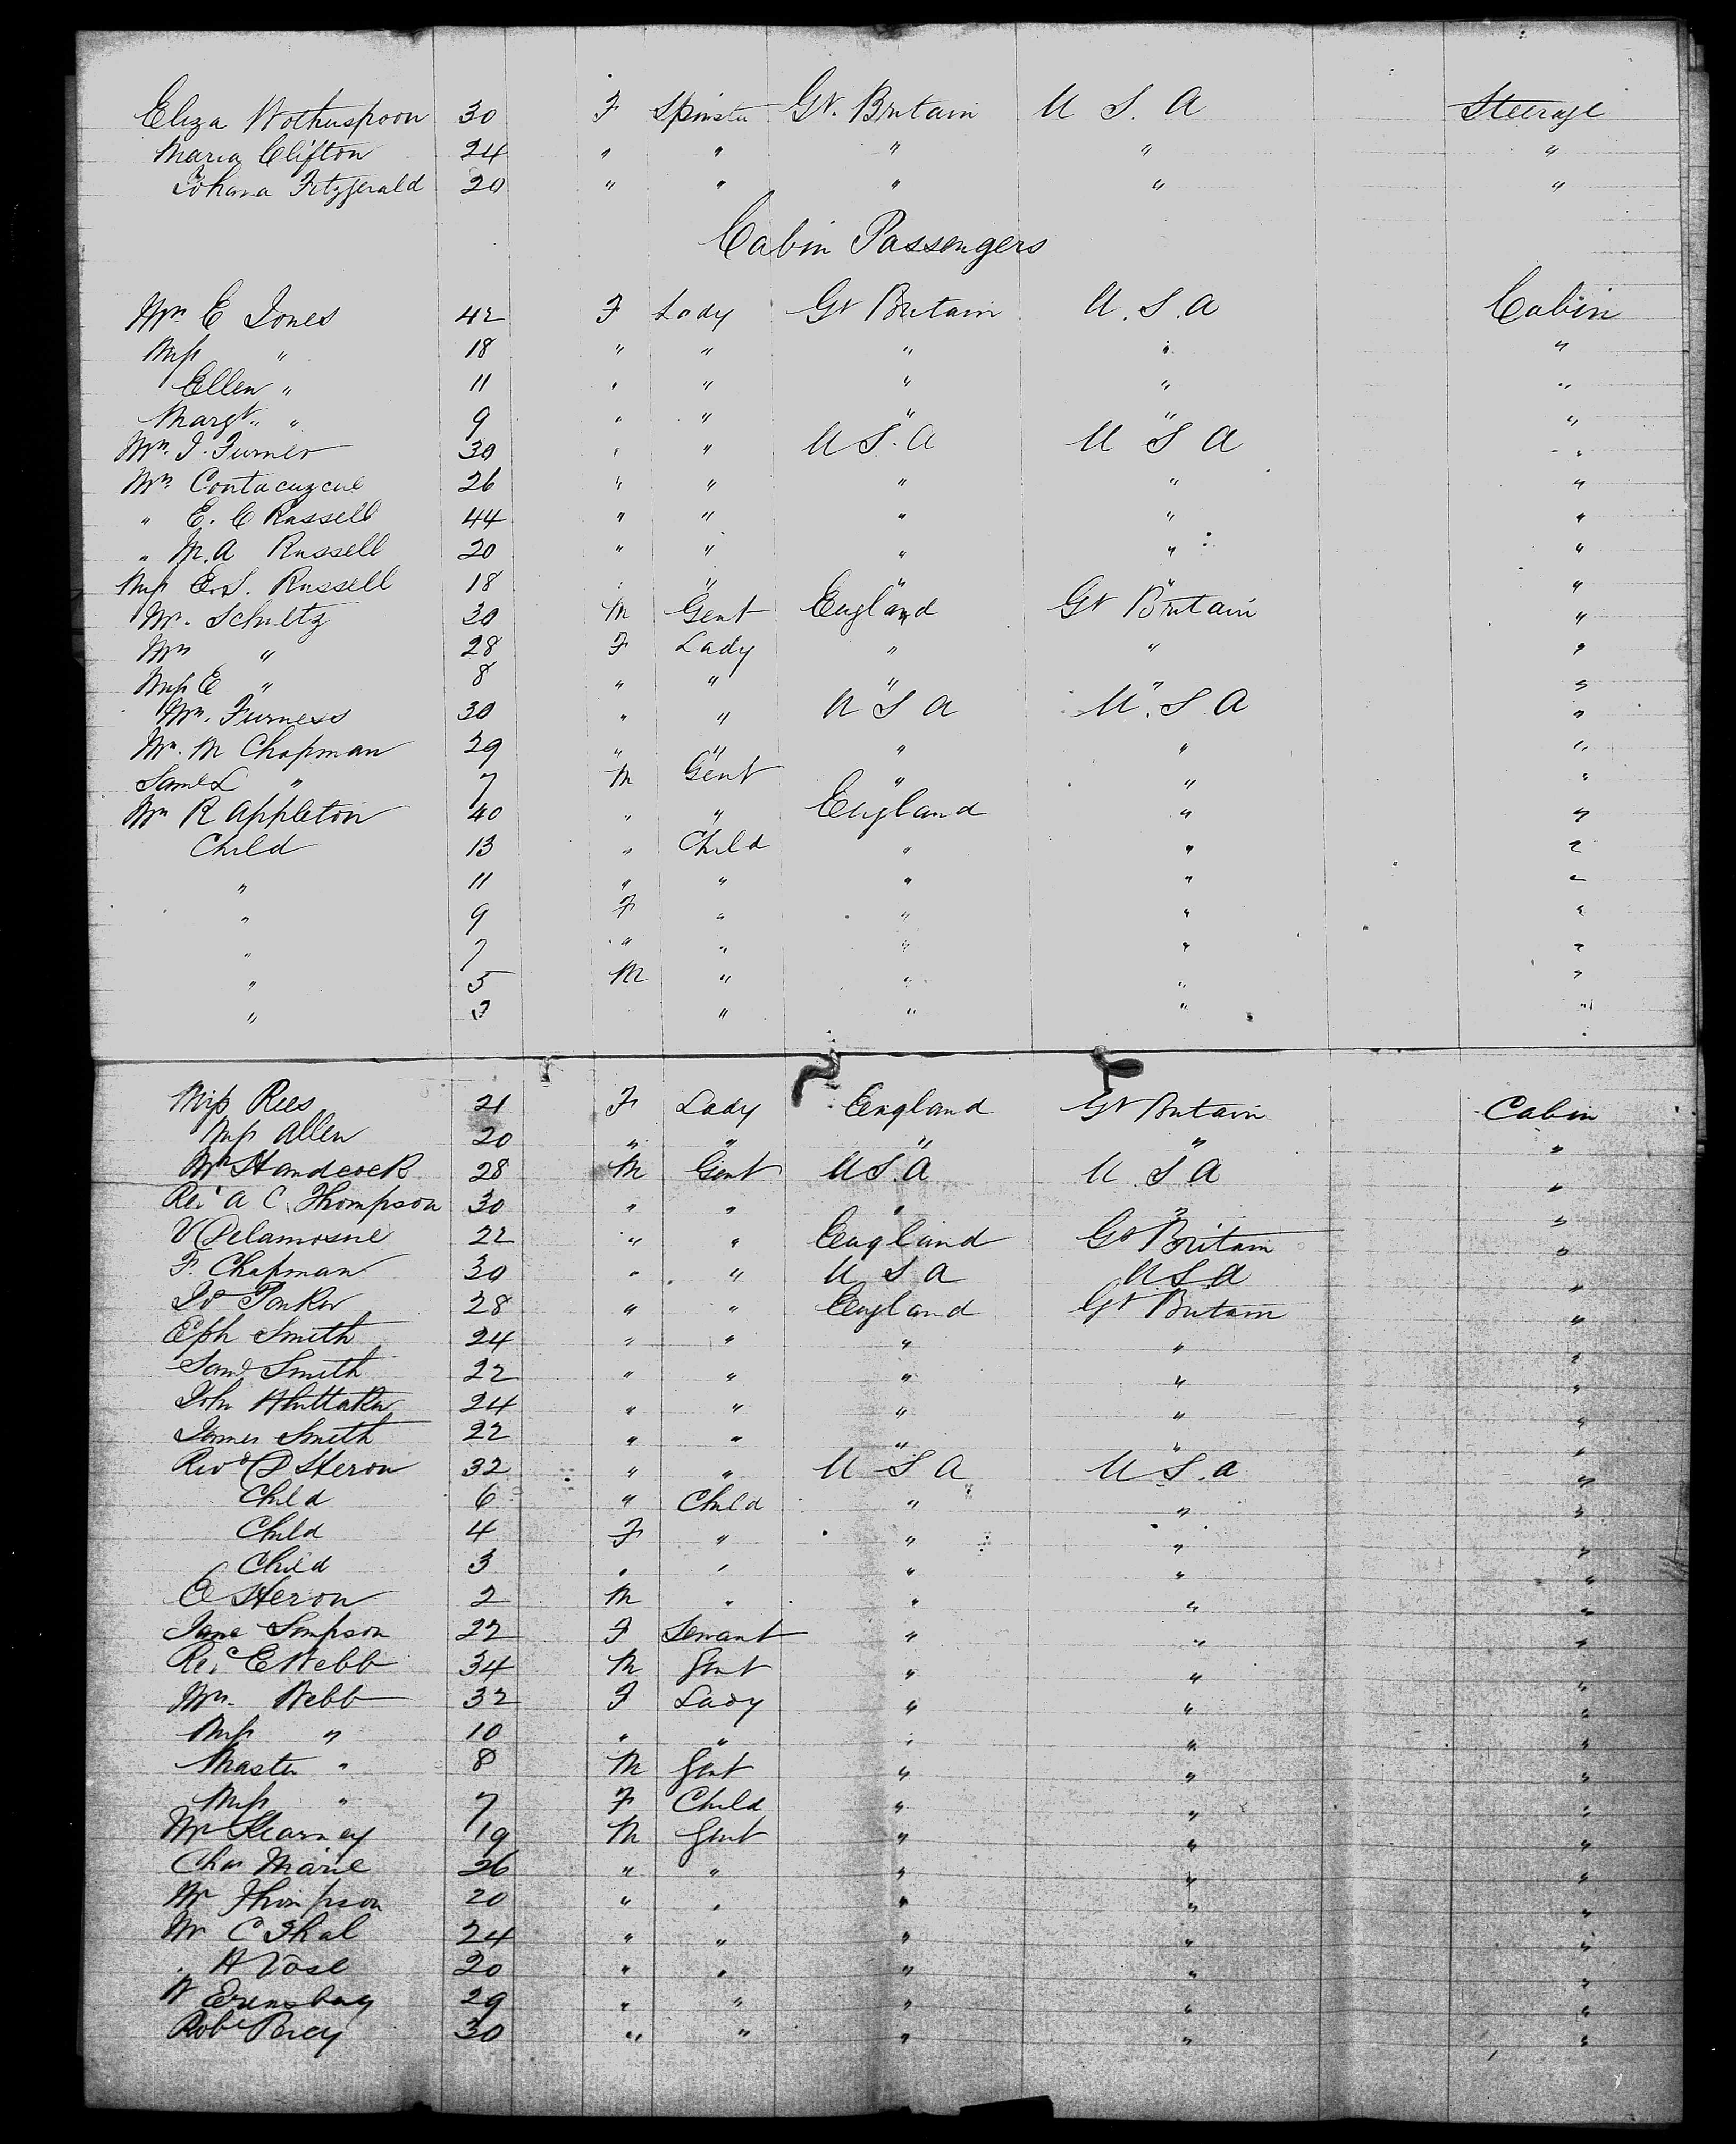 Eliza Wotherspoon 30 F Spinster Gt. Britain U S. A Steerage
Maria Clifton 24 " " " " "
Johana Fitzgerald 20 " " " " "
Cabin Passengers
Mrs E Jones 42 F Lady Gt Britain U.S.A Cabin
Miss " 18 " " " " "
Ellen " 11 " " " " "
Margt. " 9 " " " " "
Mrs. J. Turner 30 " " U S. A U S A "
Mrs 26 " " " " "
" E. C Russell 44 " " " " "
" M. A Russell 20 " " " " "
Miss E. S. Russell 18 " " " " "
Mr. Schultz 30 M Gent England Gt Britain "
Mrs " 28 F Lady " " "
Miss E " 8 " " " " "
Mrs. Furness 30 " " U S A U. S. A "
Mrs. M Chapman 29 " " " " "
Saml L " 7 M Gent " " "
Mrs R Appleton 40 " " England " "
Child 13 " Child " " "
" 11 " " " " "
" 9 F " " " "
" 7 " " " " "
" 5 M " " " "
" 3 " " " "
Miss Rees 21 F Lady England Gt Britain Cabin
Miss Allen 20 " " " " "
Mr Handcock 28 M Gent U S. A U S A "
Rev A C. Thompson 30 " " " " "
V Delamosne 22 " " England Gt Britain "
F. Chapman 30 " " U S A U S A "
Jos Parker 28 " " England Gt Britain "
Eph Smith 24 " " " " "
Saml Smith 22 " " " " "
John Whittaker 24 " " " " "
James Smith 22 " " " " "
Revd D Heron 32 " " U S A U S. a "
Child 6 " Child " " "
Child 4 F " " " "
Child 3 " " " " "
C Heron 2 M " " " "
Jane Simpson 22 F Servant " " "
Rev E Webb 34 M Gent " " "
Mrs. Webb 32 F Lady " " "
Miss " 10 " " " " "
Master " 8 M Gent " " "
Miss " 7 F Child " " "
Mr Kearney 19 M Gent " " "
Chas Marie 26 " " " " "
Mr Thompson 20 " " " " "
Mr C Thal 24 " " " " "
" H Vose 20 " " " " "
W 29 " " " " "
Robt Percy 30 " " " " "